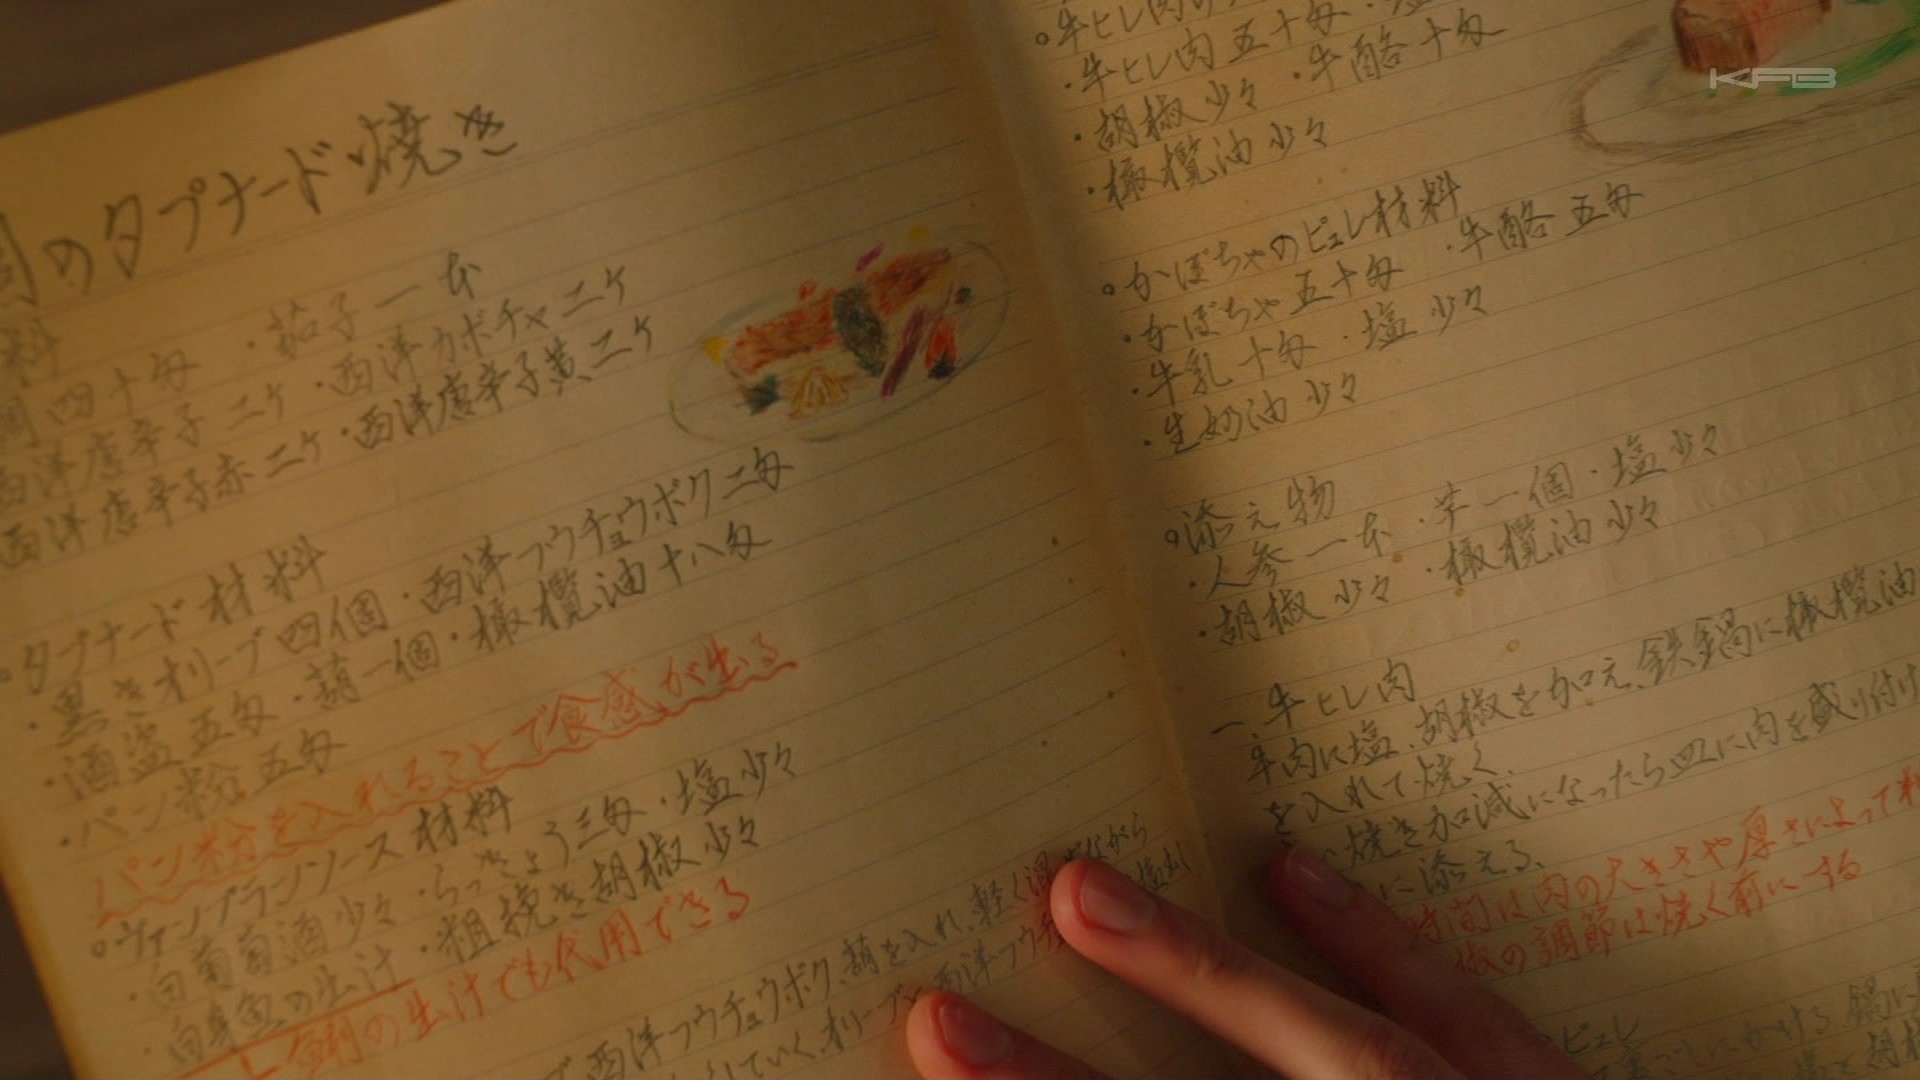 のタプナード焼き
料
鯛四十匁 ・茄子一本
西洋唐辛子二ケ ・西洋カボチャ二ケ
西洋唐辛子赤二ケ ・西洋唐辛子黄二ケ
○タプナード材料
・黒きオリーブ四個 ・西洋フウチョウボク二匁
・酒盗五匁 ・葫一個 ・橄欖油十八匁
・パン粉五匁
パン粉を入れることで食感が出る
○ヴァンブランソース材料
・白葡萄酒少々 ・らっきょう三匁 ・塩少々
・白身魚の出汁 ・粗挽き胡椒少々
鯛の出汁でも代用できる
西洋フウチョウボク、葫を入れ、軽く
していく、オリーブと西洋フウチョ
○牛ヒレ肉
・牛ヒレ肉五十匁 ・塩
・胡椒少々 ・牛酪十匁
・橄欖油少々
○かぼちゃのピュレ材料
・かぼちゃ五十匁 ・牛酪五匁
・牛乳十匁 ・塩少々
・生奶油少々
○添え物
・人参一本 ・芋一個 ・塩少々
・胡椒少々 ・橄欖油少々
一、牛ヒレ肉
牛肉に塩、胡椒を加え、鉄鍋に橄欖油
を入れて焼く。
焼き加減になったら皿に肉を盛り付け
に添える。
時間は肉の大きさや厚さによって
椒の調節は焼く前にする
ピュレ
KFB